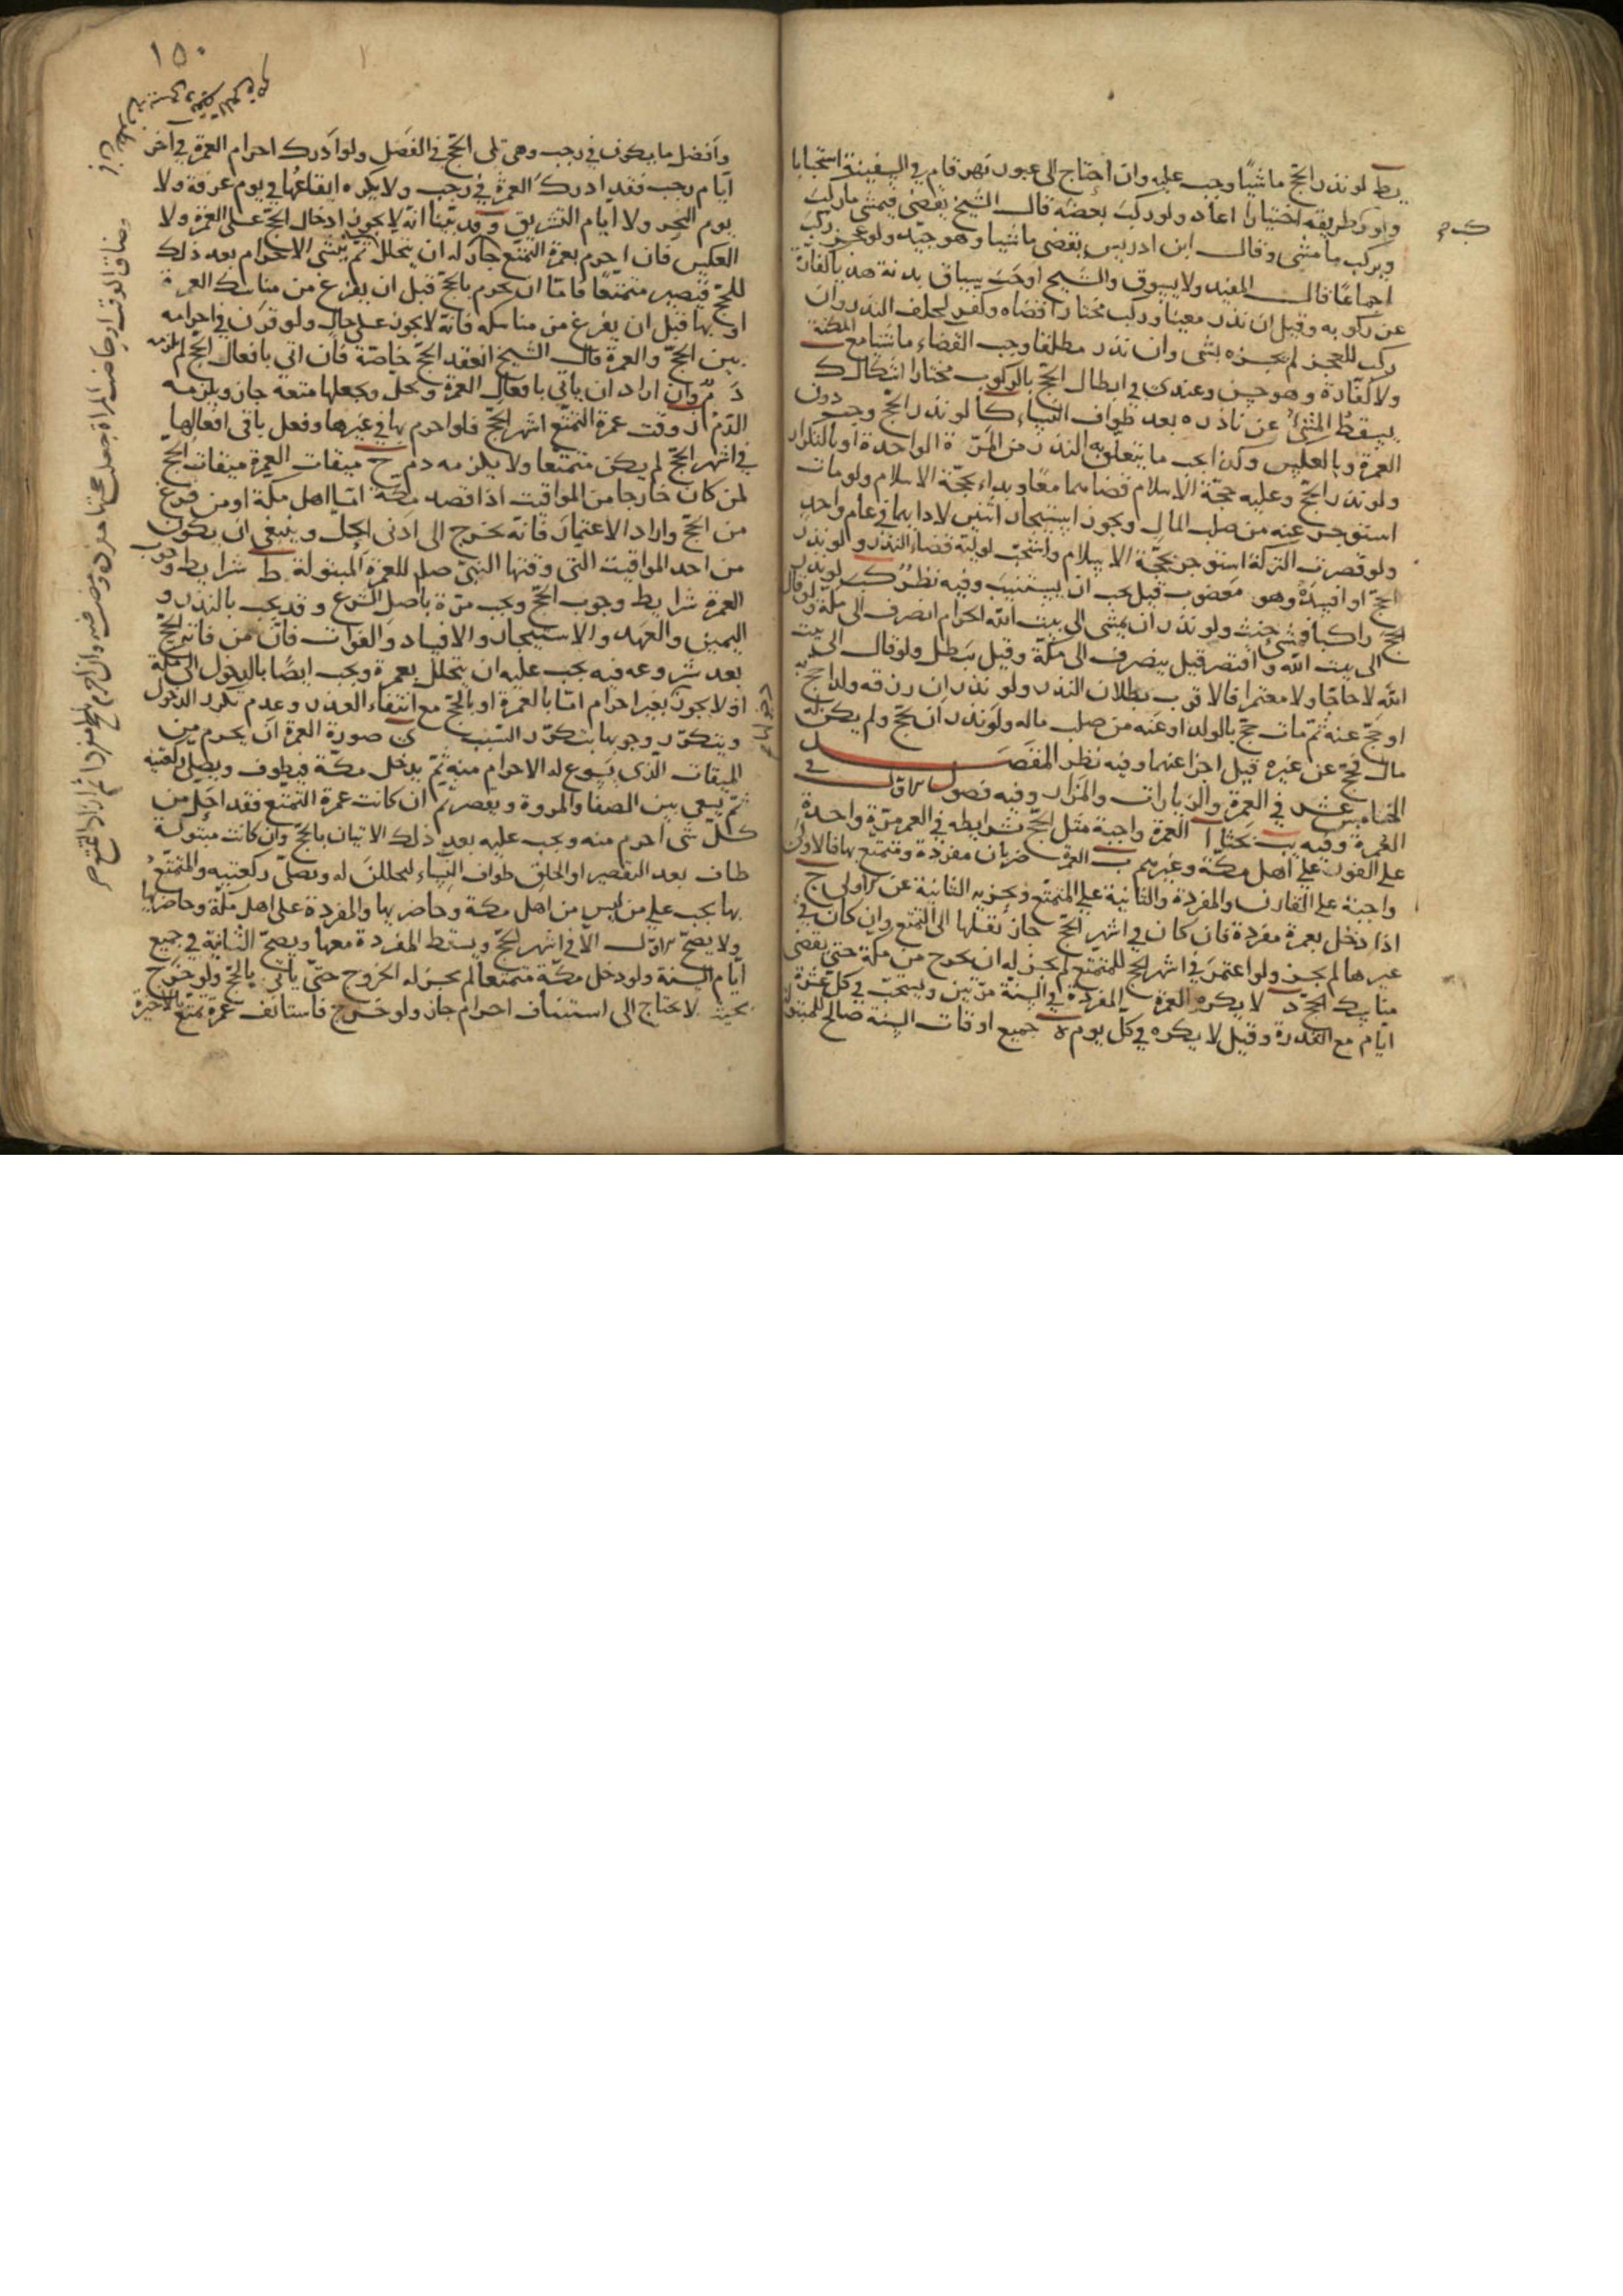 يط لو نذر الحج ماشيا وجب عليه وان احتاج الى عبور نهر قام في السفينة استحبابا
ولو ركب طريقه اختيارا اعاد ولو ركب بعضه قال الشيخ يقضى فيمشى ما ركب
ويركب ما مشى وقال ابن ادريس يقضى ماشيا وهو جيد ولو عجز ركب
اجماعا قال المفيد ولا يسوق والشيخ اوجب سياق بدنة هديا كفارة
عن ركوبه وقيل ان نذر معينا وركب مختارا قضاه وكفر لخلف النذر وان
ركب للعجز لم يجزه بشى وان نذر مطلقا وجب القضاء ماشيا مع المكنة
ولا كفارة وهو حسن وعندى في ابطال الحج بالركوب مختارا اشكال ك
يسقط المشى عن ناذره بعد طواف النساء كا لو نذر الحج وجب دون
العمرة وبالعكس وكذا يجب ما يتعلق به النذر من المرة الواحدة او بالتكرار
ولو نذر الحج وعليه حجة الاسلام قضاهما معا وبداء بحجة الاسلام ولو مات
استوجر عنه من صلب المال ويجوز استيجار اثنين لادائهما في عام واحد
ولو قصرت التركة استوجر بحجة الاسلام واستحب لوليه قضاء النذر ولو نذر
الحج او افسده وهو معضوب قيل يجب ان يستنيب وفيه نظر كب لو نذر
الحج راكبا فمشى حنث ولو نذر ان يمشى الى بيت الله الحرام انصرف الى مكة ولو قال
الى بيت الله واقتصر قيل ينصرف الى مكة وقيل يبطل ولو قال الى بيت
الله لا حاجا ولا معتمرا فالاقرب بطلان النذر ولو نذر ان رزقه ولدا يحج به
او يحج عنه ثم مات حج بالولد او عنه من صلب ماله ولو نذر ان يحج ولم يكن له
مال فحج عن غيره قيل اجزا عنهما وفيه نظر المقصد
الخامس عشر في العمرة والزيارات والمزار وفيه فصول الاول في
العمرة وفيه يب بحثا ا العمرة واجبة مثل الحج بشرايطه في العمر مرة واحدة
على الفور على اهل مكة وغيرهم ب العمرة ضربان مفردة وتمتع بها فالاولى
واجبة على القارن والمفردة والثانية على المتمتع وتجزيه الثانية عن الاولى ج
اذا دخل بعمرة مفردة فان كان في اشهر الحج جاز نقلها الى التمتع وان كان في
غيرها لم يجز ولو اعتمر في اشهر الحج للمتمتع لم يجز له ان يخرج من مكة حتى يقضى
مناسك الحج د لا يكره العمرة المفردة في السنة مرتين ويستحب في كل عشرة
ايام مع القدرة وقيل لا يكره في كل يوم ه جميع اوقات السنة صالح للمبتولة
١٥٠
وافضل ما يكون في رجب وهى تلى الحج في الفضل ولو ادرك احرام العمرة في اخر
ايام رجب فقد ادرك العمرة في رجب ولا يكره ايقاعها في يوم عرفة ولا
يوم النحر ولا ايام التشريق وقد بينا انه لا يجوز ادخال الحج على العمرة ولا
العكس فان احرم بعمرة التمتع جاز له ان يتحلل ثم ينشى الاحرام بعد ذلك
للحج فيصير متمتعا فاما ان يحرم بالحج قبل ان يفرغ من مناسك العمرة
او بها قبل ان يفرغ من مناسكه فانه لا يجوز على حال ولو قرن في احرامه
بين الحج والعمرة قال الشيخ انعقد الحج خاصة فان اتى بافعال الحج لم يلزمه
دم وان اراد ان ياتى بافعال العمرة ويحل ويجعلها متعة جاز ويلزمه
الدم ز وقت عمرة التمتع اشهر الحج فلو احرم بها في غيرها وفعل باقى افعالها
في اشهر الحج لم يكن متمتعا ولا يلزمه دم ح ميقات العمرة ميقات الحج
لمن كان خارجا من المواقيت اذا قصد مكة اما اهل مكة او من فرغ
من الحج واراد الاعتمار فانه يخرج الى ادنى الحل وينبغى ان يكون
من احد المواقيت التى وقتها النبى صلع للعمرة المبتولة ط شرايط وجوب
العمرة شرايط وجوب الحج ويجب مرة باصل الشرع وقد يجب بالنذر و
اليمين والعهد والاستيجار والافساد والفوات فان من فاته الحج
بعد شروعه فيه يجب عليه ان يتحلل بعمرة ويجب ايضا بالدخول الى مكة
اذ لا يجوز بغير احرام اما بالعمرة او بالحج مع انتفاء العذر وعدم تكرر الدخول
ويتكرر وجوبها بتكرر السبب ى صورة العمرة ان يحرم من
الميقات الذى يسوغ له الاحرام منه ثم يدخل مكة فيطوف ويصلى ركعتيه
ثم يسعى بين الصفا والمروة ويقصر ثم ان كانت عمرة التمتع فقد احل من
كل شى احرم منه ويجب عليه بعد ذلك الاتيان بالحج وان كانت مبتولة
طاف بعد التقصير او الحلق طواف النساء لتحللن له وتصلى ركعتيه والمتمتع
بها يجب على من ليس من اهل مكة وحاضريها والمفردة على اهل مكة وحاضريها
ولا يصح الاول الا في اشهر الحج ويسقط المفردة معها ويصح الثانية في جميع
ايام السنة ولو دخل مكة متمتعا لم يجز له الخروج حتى ياتى بالحج ولو خرج
بحيث لا يحتاج الى استيناف احرام جاز ولو خرج فاستانف عمرة تمتع بالاخيرة